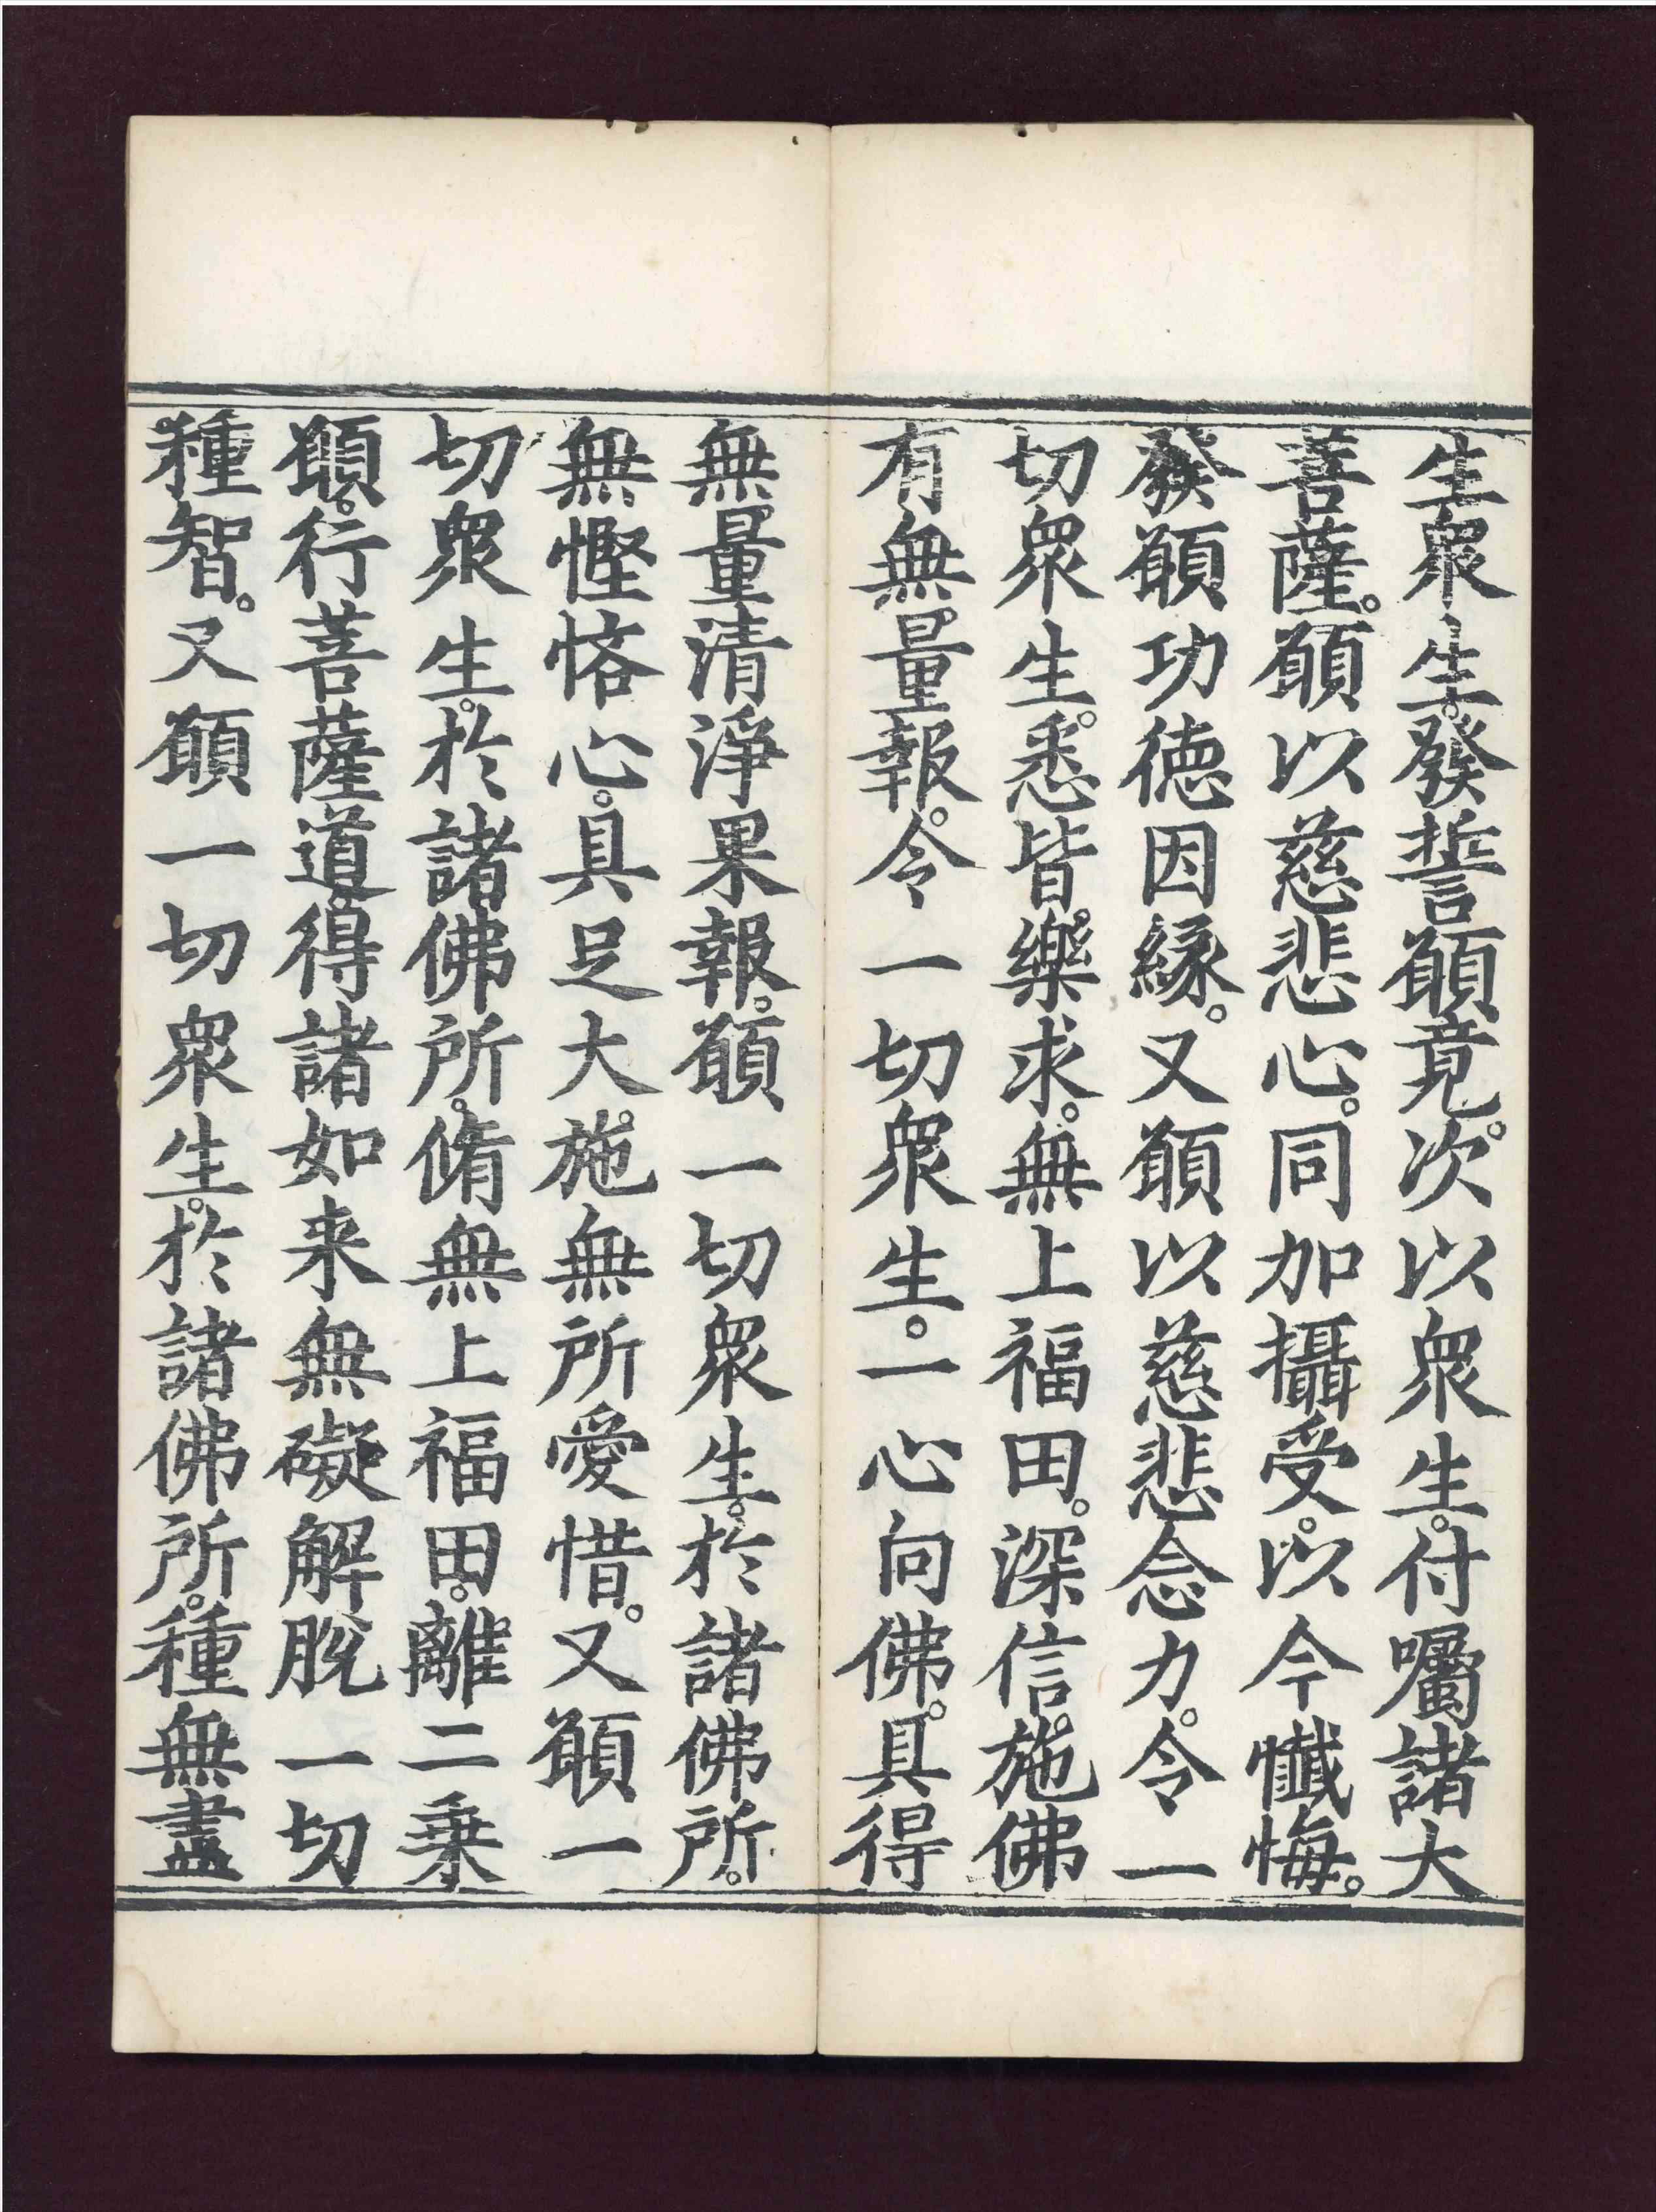 生眾生。發誓願竟。次以眾生。付囑諸大
菩薩。願以慈悲心。同加攝受。以今懺悔。
發願功德因緣。又願以慈悲念力。令一
切眾生。悉皆樂求。無上福田。深信施佛
有無量報。令一切眾生。一心向佛。具得
無量清淨果報。願一切眾生。於諸佛所。
無慳悋心。具足大施。無所愛惜。又願一
切眾生。於諸佛所。脩無上福田。離二乗
願。行菩薩道。得諸如来無礙解脫一切
種智。又願一切眾生。於諸佛所。種無盡